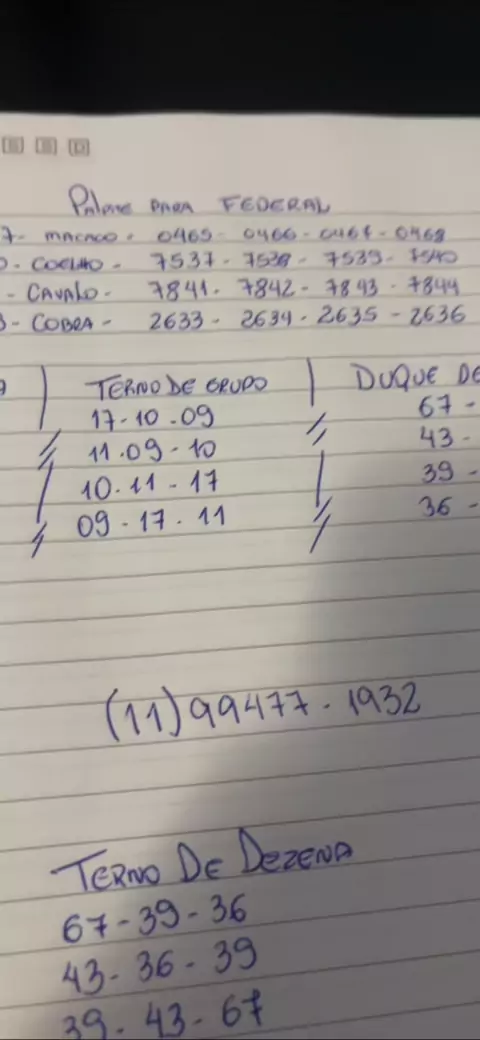 Palpite PARA FEDERAL
7- MACACO - 0465 - 0466 - 0467 - 0468
0- COELHO - 7537 - 7538 - 7539 - 7540
- CAVALO - 7841 - 7842 - 7843 - 7844
- COBRA - 2633 - 2634 - 2635 - 2636
TERNO DE GRUPO DUQUE DE
17-10-09 67 -
11-09-10 43 -
10-11-17 39 -
09-17-11 36 -
(11)99477-1932
TERNO DE DEZENA
67-39-36
43-36-39
39-43-67